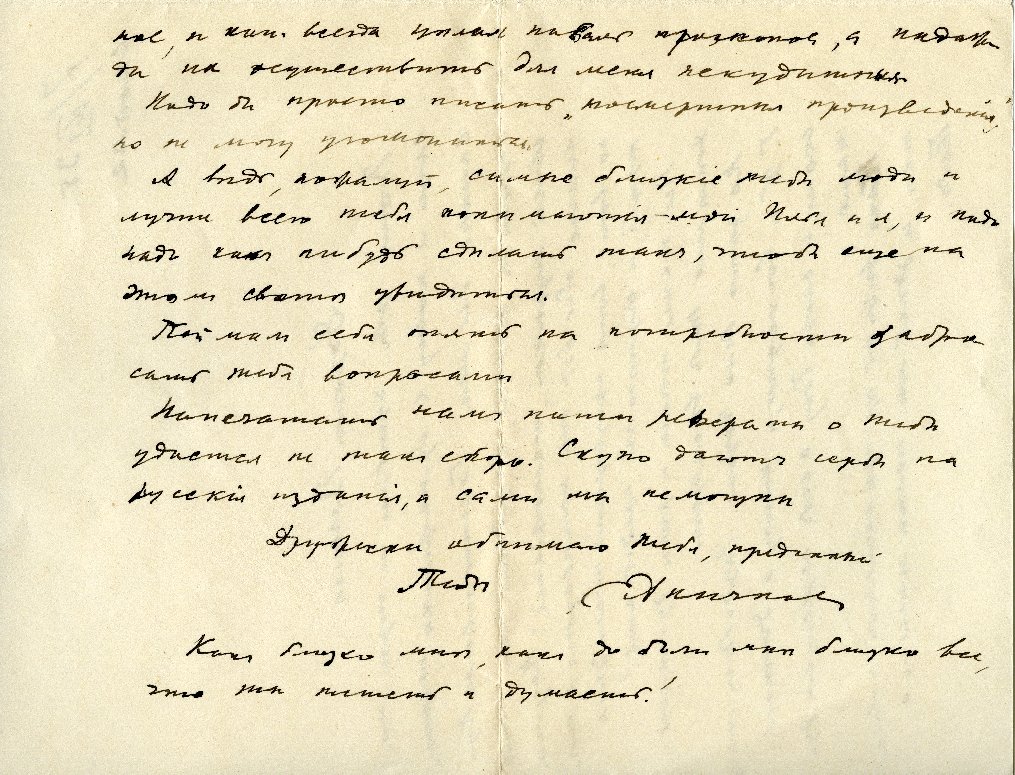 ное, и как всегда целая прожектов, а надежды
да на осуществить для меня
Надо бы просто писать „посмертныя произведенія",
но не могу угомониться.
А ведь, пожалуй, самые близкіе тебе люди и
лучше всего тебя понимающія – мой Илья и я, и надо
надо как нибудь сделать так, чтобы еще на
этом свете увидиться.
Поймал себя опять на потребности забро-
сать тебя вопросами
Напечатать нам наши рефераты о тебе
удастся не так скоро. Скупо дают сербы на
русскія изданія, а сами мы немощны
Дружески обнимаю тебя, преданный
Тебе Аничков
Как близко мне, как до боли мне близко все,
что ты пишешь и думаешь!